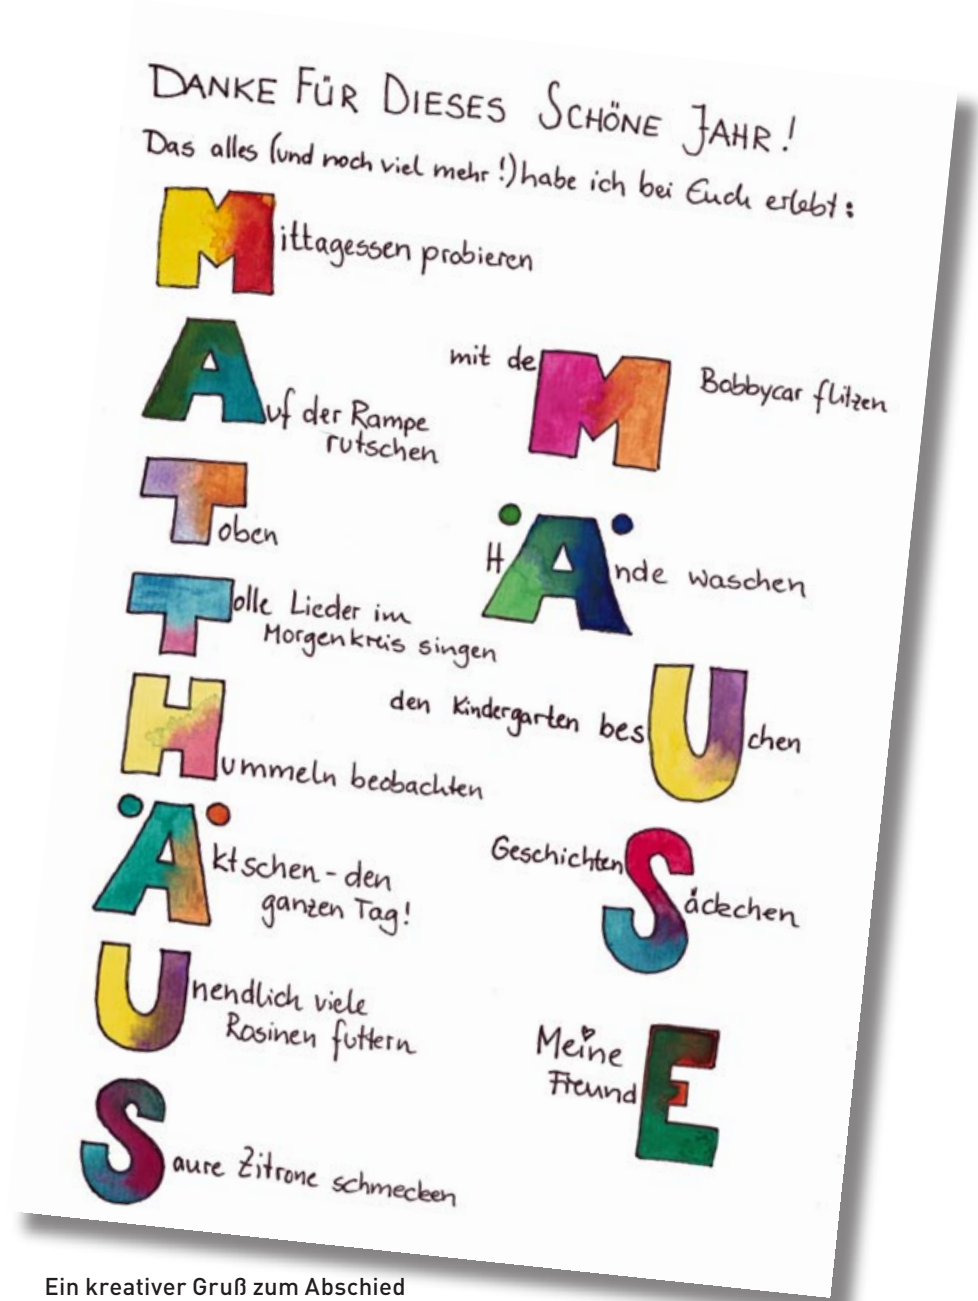 DANKE FÜR DIESES SCHÖNE JAHR!
Das alles (und noch viel mehr!) habe ich bei Euch erlebt:
Mittagessen probieren
Auf der Rampe
rutschen
Toben
Tolle Lieder im
Morgenkreis singen
Hummeln beobachten
Äktschen - den
ganzen Tag!
Unendlich viele
Rosinen futtern
Saure Zitrone schmecken
mit deM Bobbycar flitzen
HÄnde waschen
den Kindergarten besUchen
GeschichtenSäckchen
Meine
FreundE
Ein kreativer Gruß zum Abschied